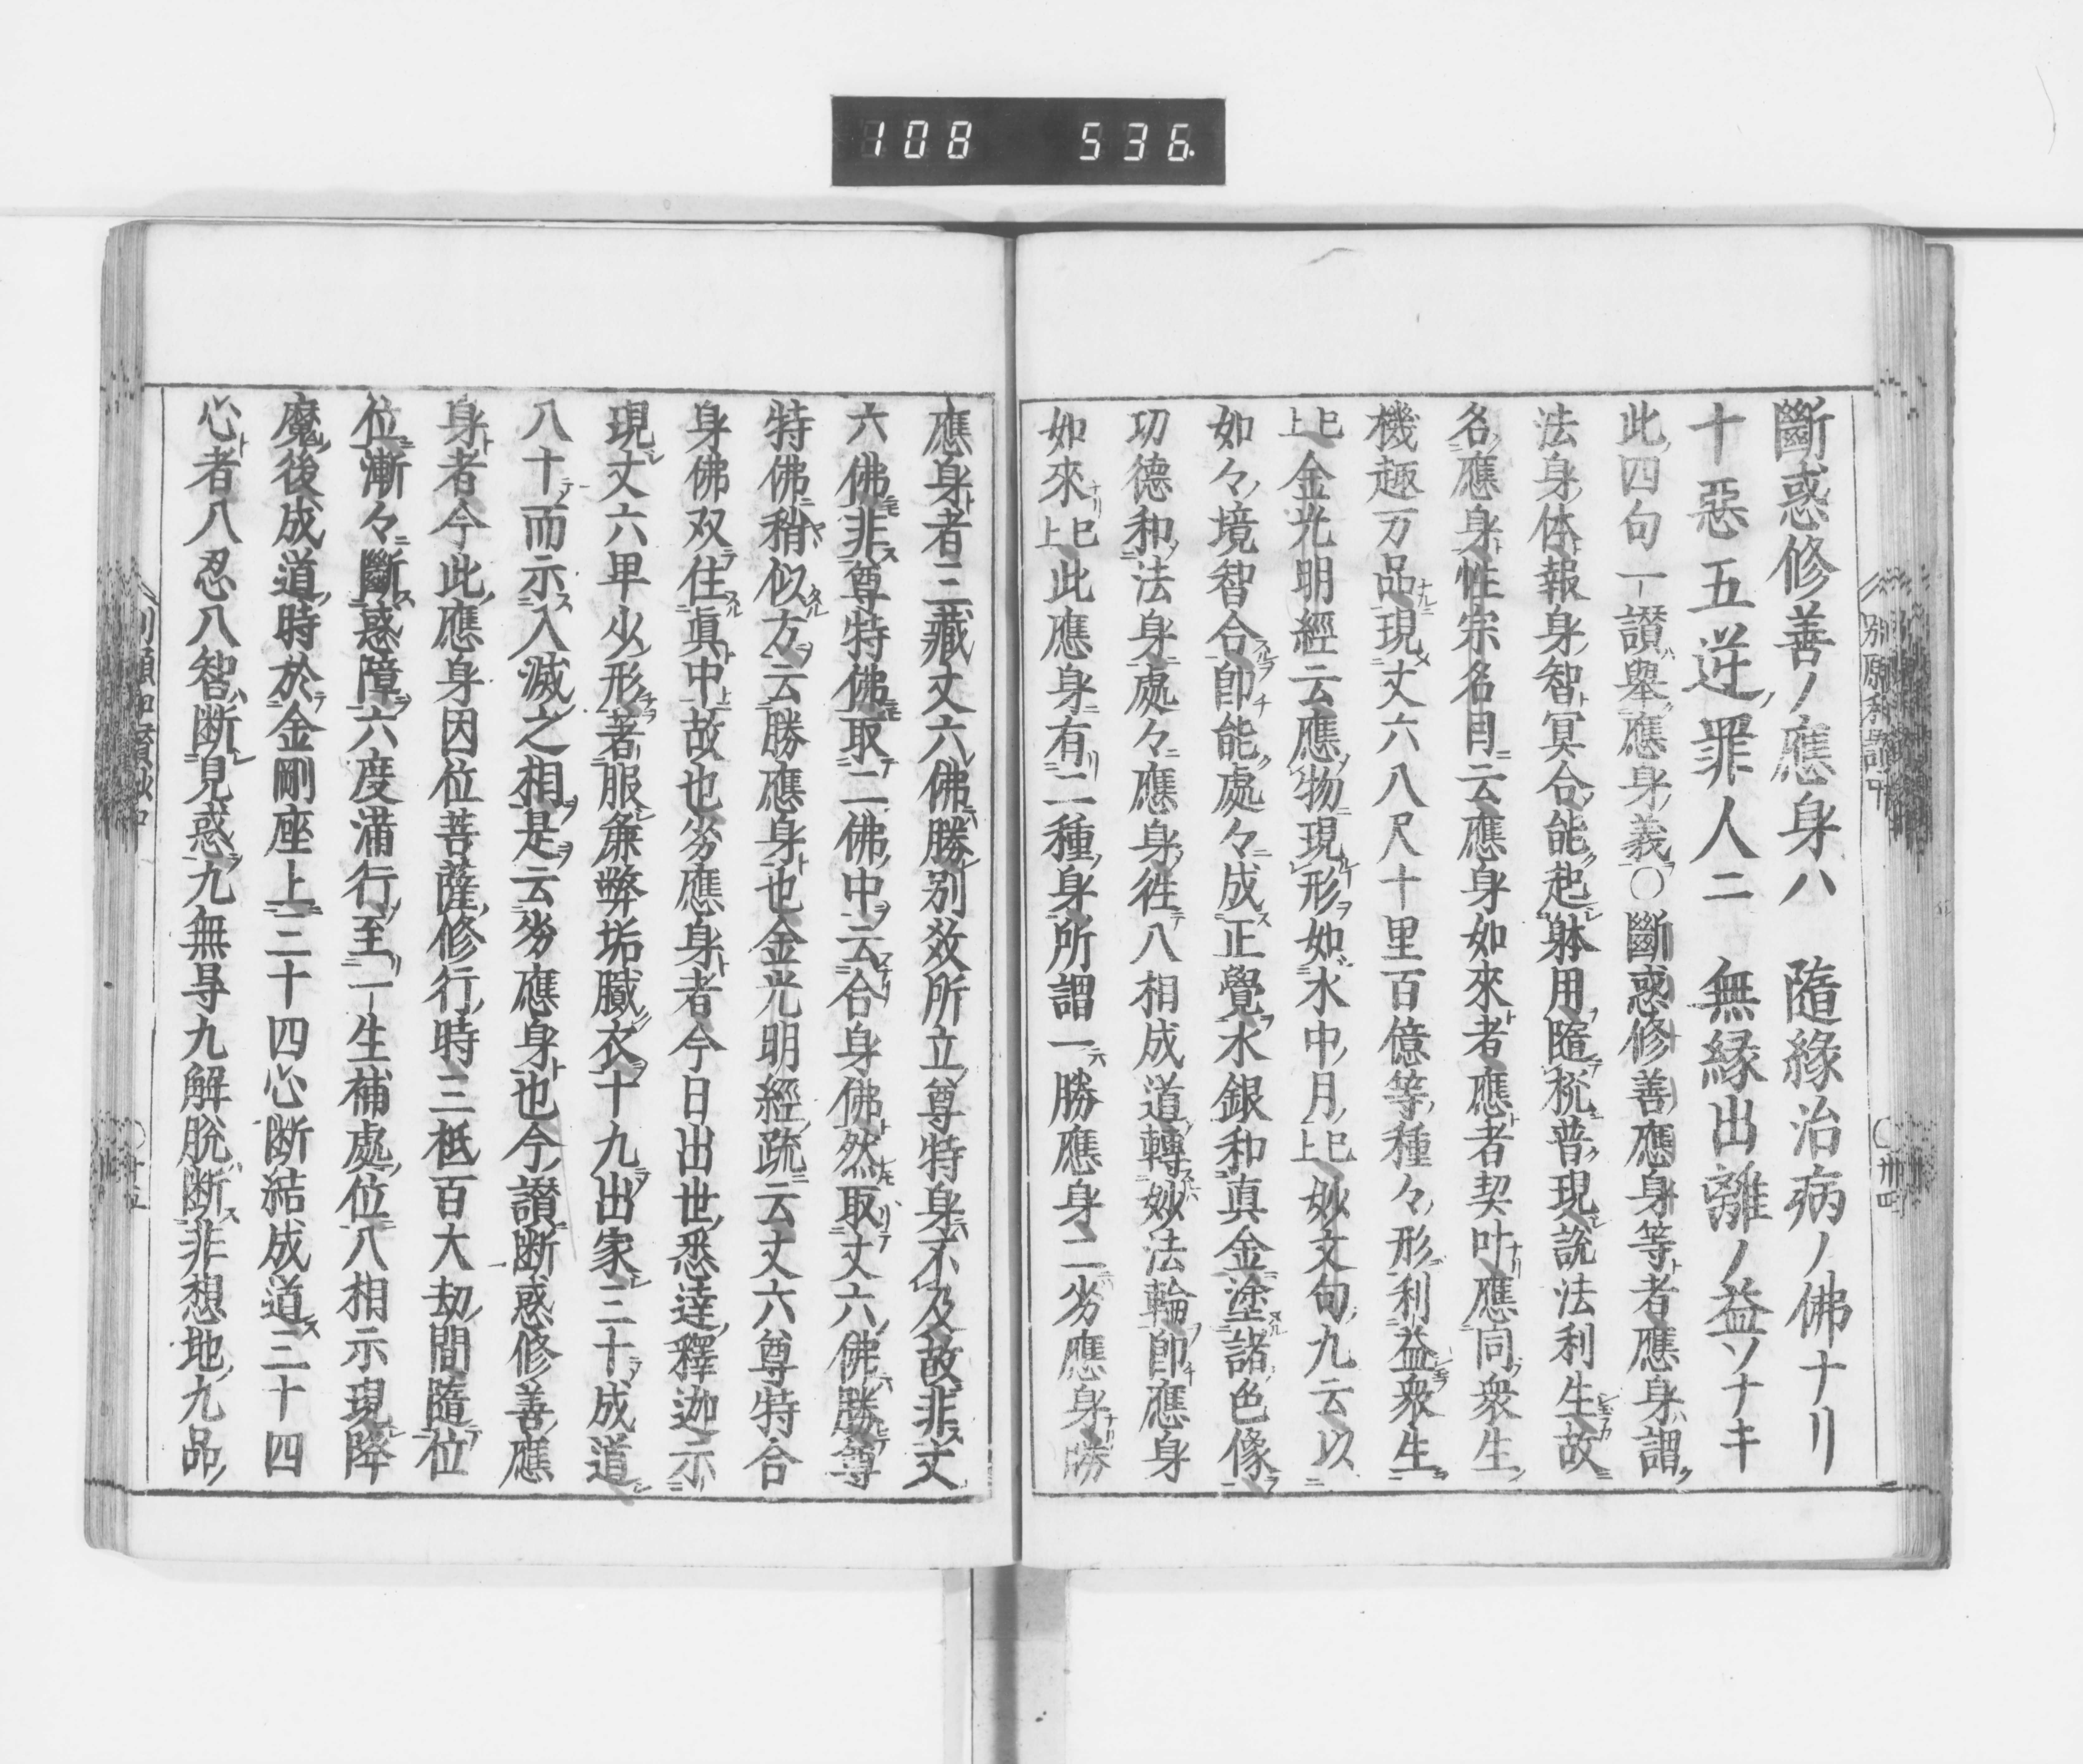 108 536
斷惑修善ノ應身ハ 隨緣治病ノ佛ナリ
十惡五逆罪人ニ 無縁出離ノ益ソナキ
此四句一讃舉應身義○斷惑修善應身等者應身謂
法身体報身智冥合能起躰用隨桄普現說法利生故
名應身性宗名目云應身如來者應者契叶應同衆生
機趣万品現丈六八尺十里百億等種々形利益衆生
已上金光明經云應物現形如水中月已上妙文句九云以
如々境智合卽能處々成正覺水銀和真金塗諸色像
功德和法身處々應身徃八相成道轉妙法輪卽應身
如來已上此應身有二種身所謂一勝應身二劣應身勝
應身者三藏丈六佛勝別教所立尊特身不及故非丈
六佛非尊特佛取二佛中云合身佛然取丈六佛勝尊
特佛稍似方云勝應身也金光明經疏云丈六尊特合
身佛双住真中故也劣應身者今日出世悉達釋迦示
現丈六卑少形著服麁弊垢膩衣十九出家三十成道
八十而示入滅之相是云劣應身也今讃断惑修善應
身者今此應身因位菩薩修行時三祇百大劫間隨位
位漸々斷惑障六度滿行至一生補處位八相示現降
魔後成道時於金剛座上三十四心断結成道三十四
心者八忍八智断見惑九無㝵九解脫断非想地九品